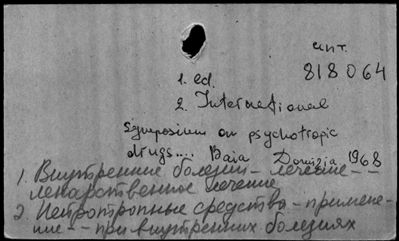 инт.
818064
1. ed.
2. International
Symposium on psychotropic
drugs.... Baia Domizia 1968
1. Внутренние болезни - лечение --
лекарственное лечение
2. Нейротропные средства - примене-
ние -- при внутренних болезнях